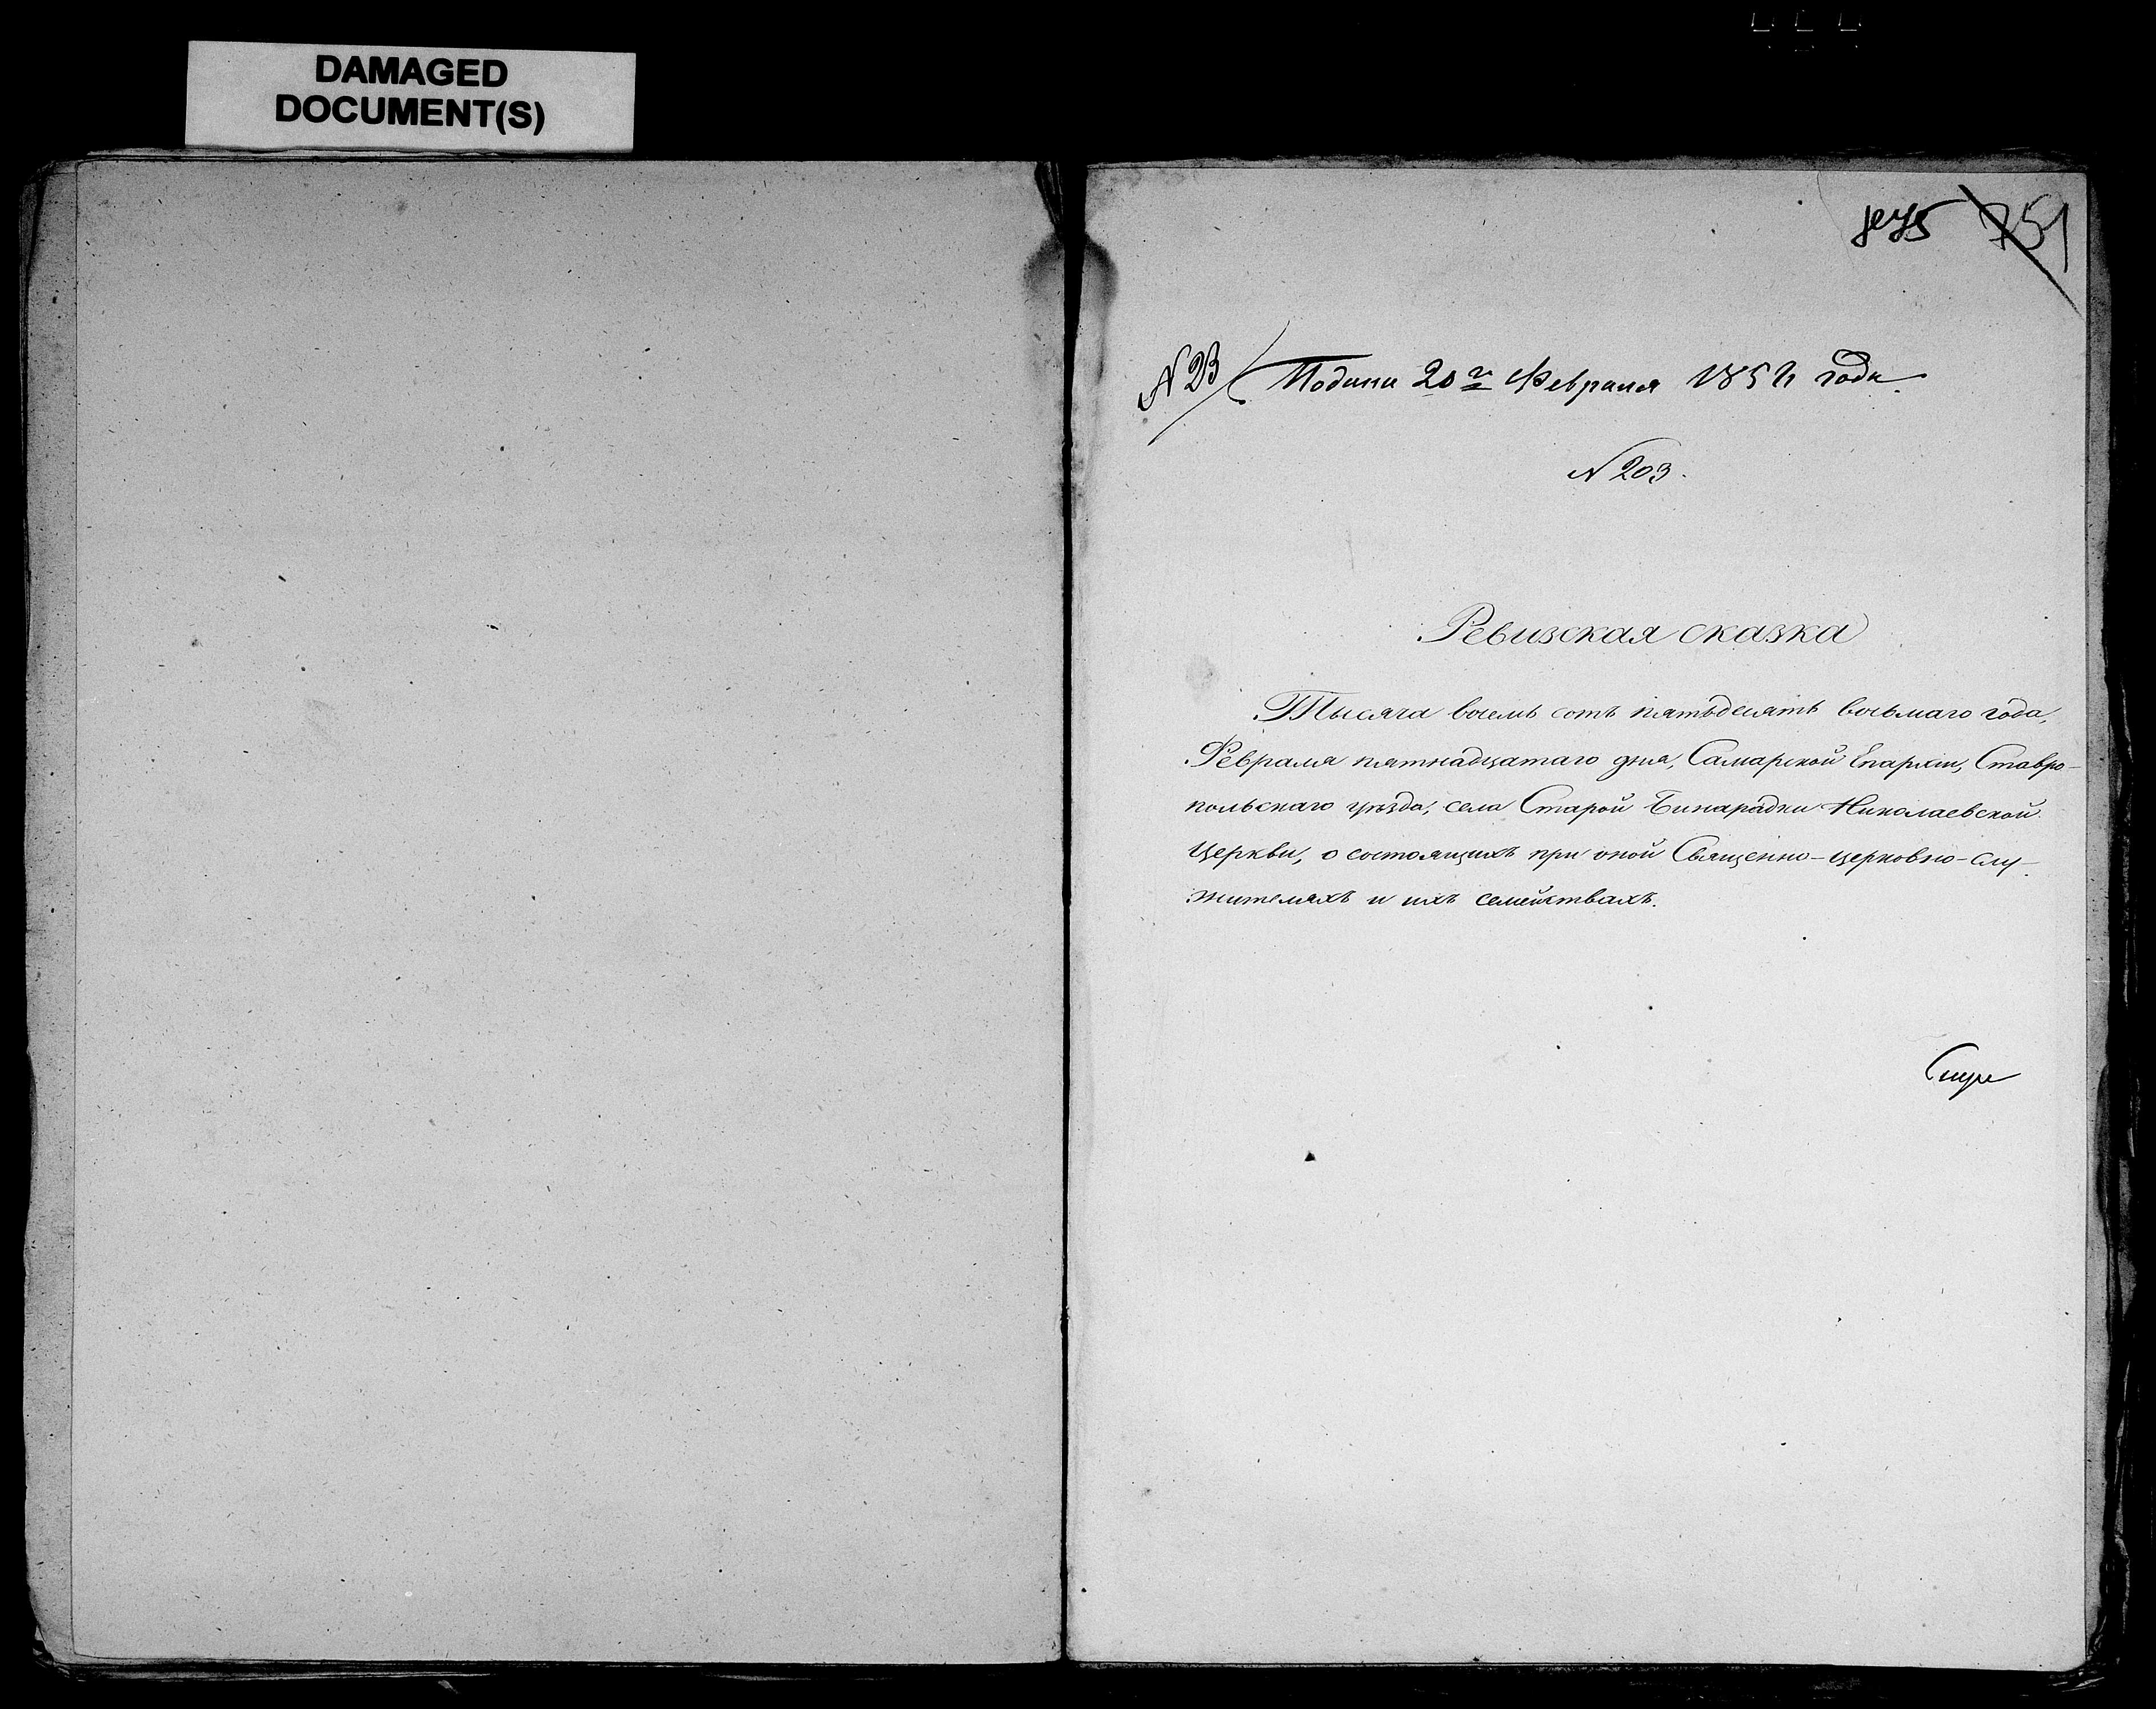 DAMAGED
DOCUMENT(S)
751
N 23 Подана 20го Февраля 1858 года.
N 203.
Ревизская сказка
Тысяча восемь сотъ пятьдесятъ восьмаго года,
Февраля пятнадцатаго дня, Самарской Епархіи, Ставро-
польскаго уѣзда, села Старой Бинарадки Николаевской
Церкви, о состоящихъ при оной Священно-церковно-слу-
жителяхъ и ихъ семействахъ.